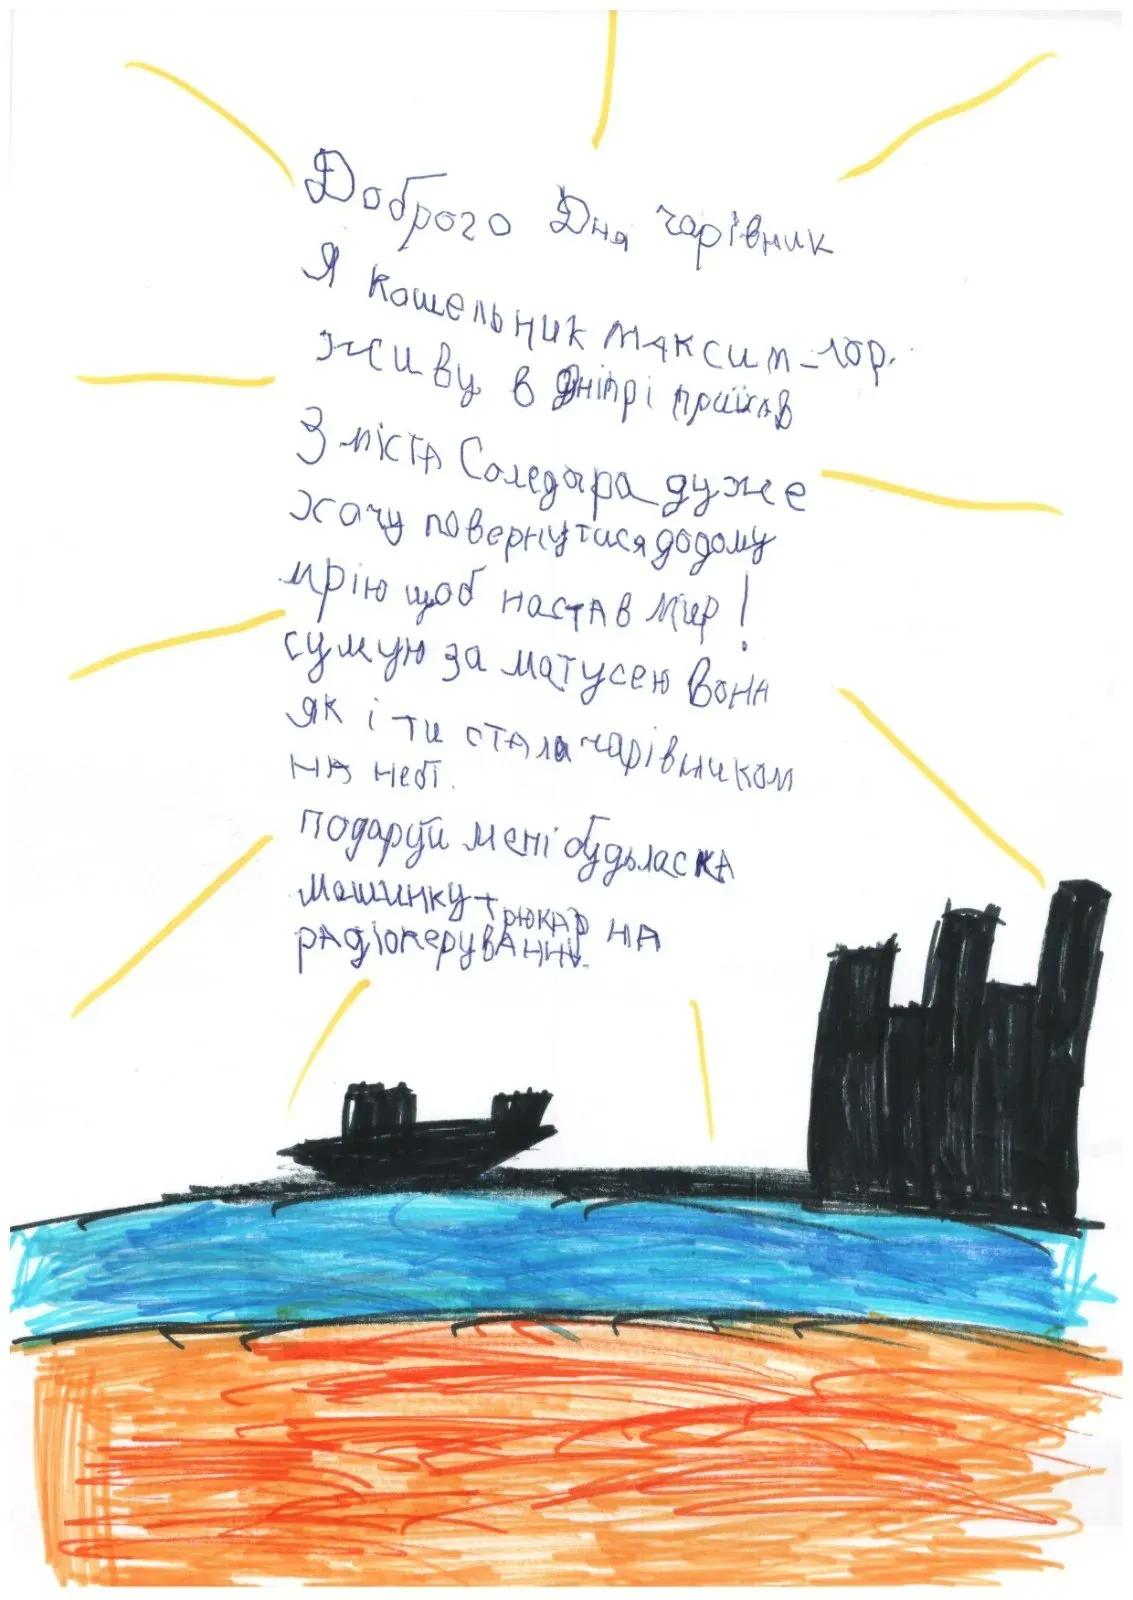 Доброго Дня чарівник
Я Кошельник Максим - 10р.
живу в Дніпрі приїхав
З міста Соледара дуже
хочу повернутися додому
мрію щоб настав мир!
сумую за матусею вона
як і ти стала чарівником
на небі.
подаруй мені будьласка
машинку трюкар на
радіокеруванні.